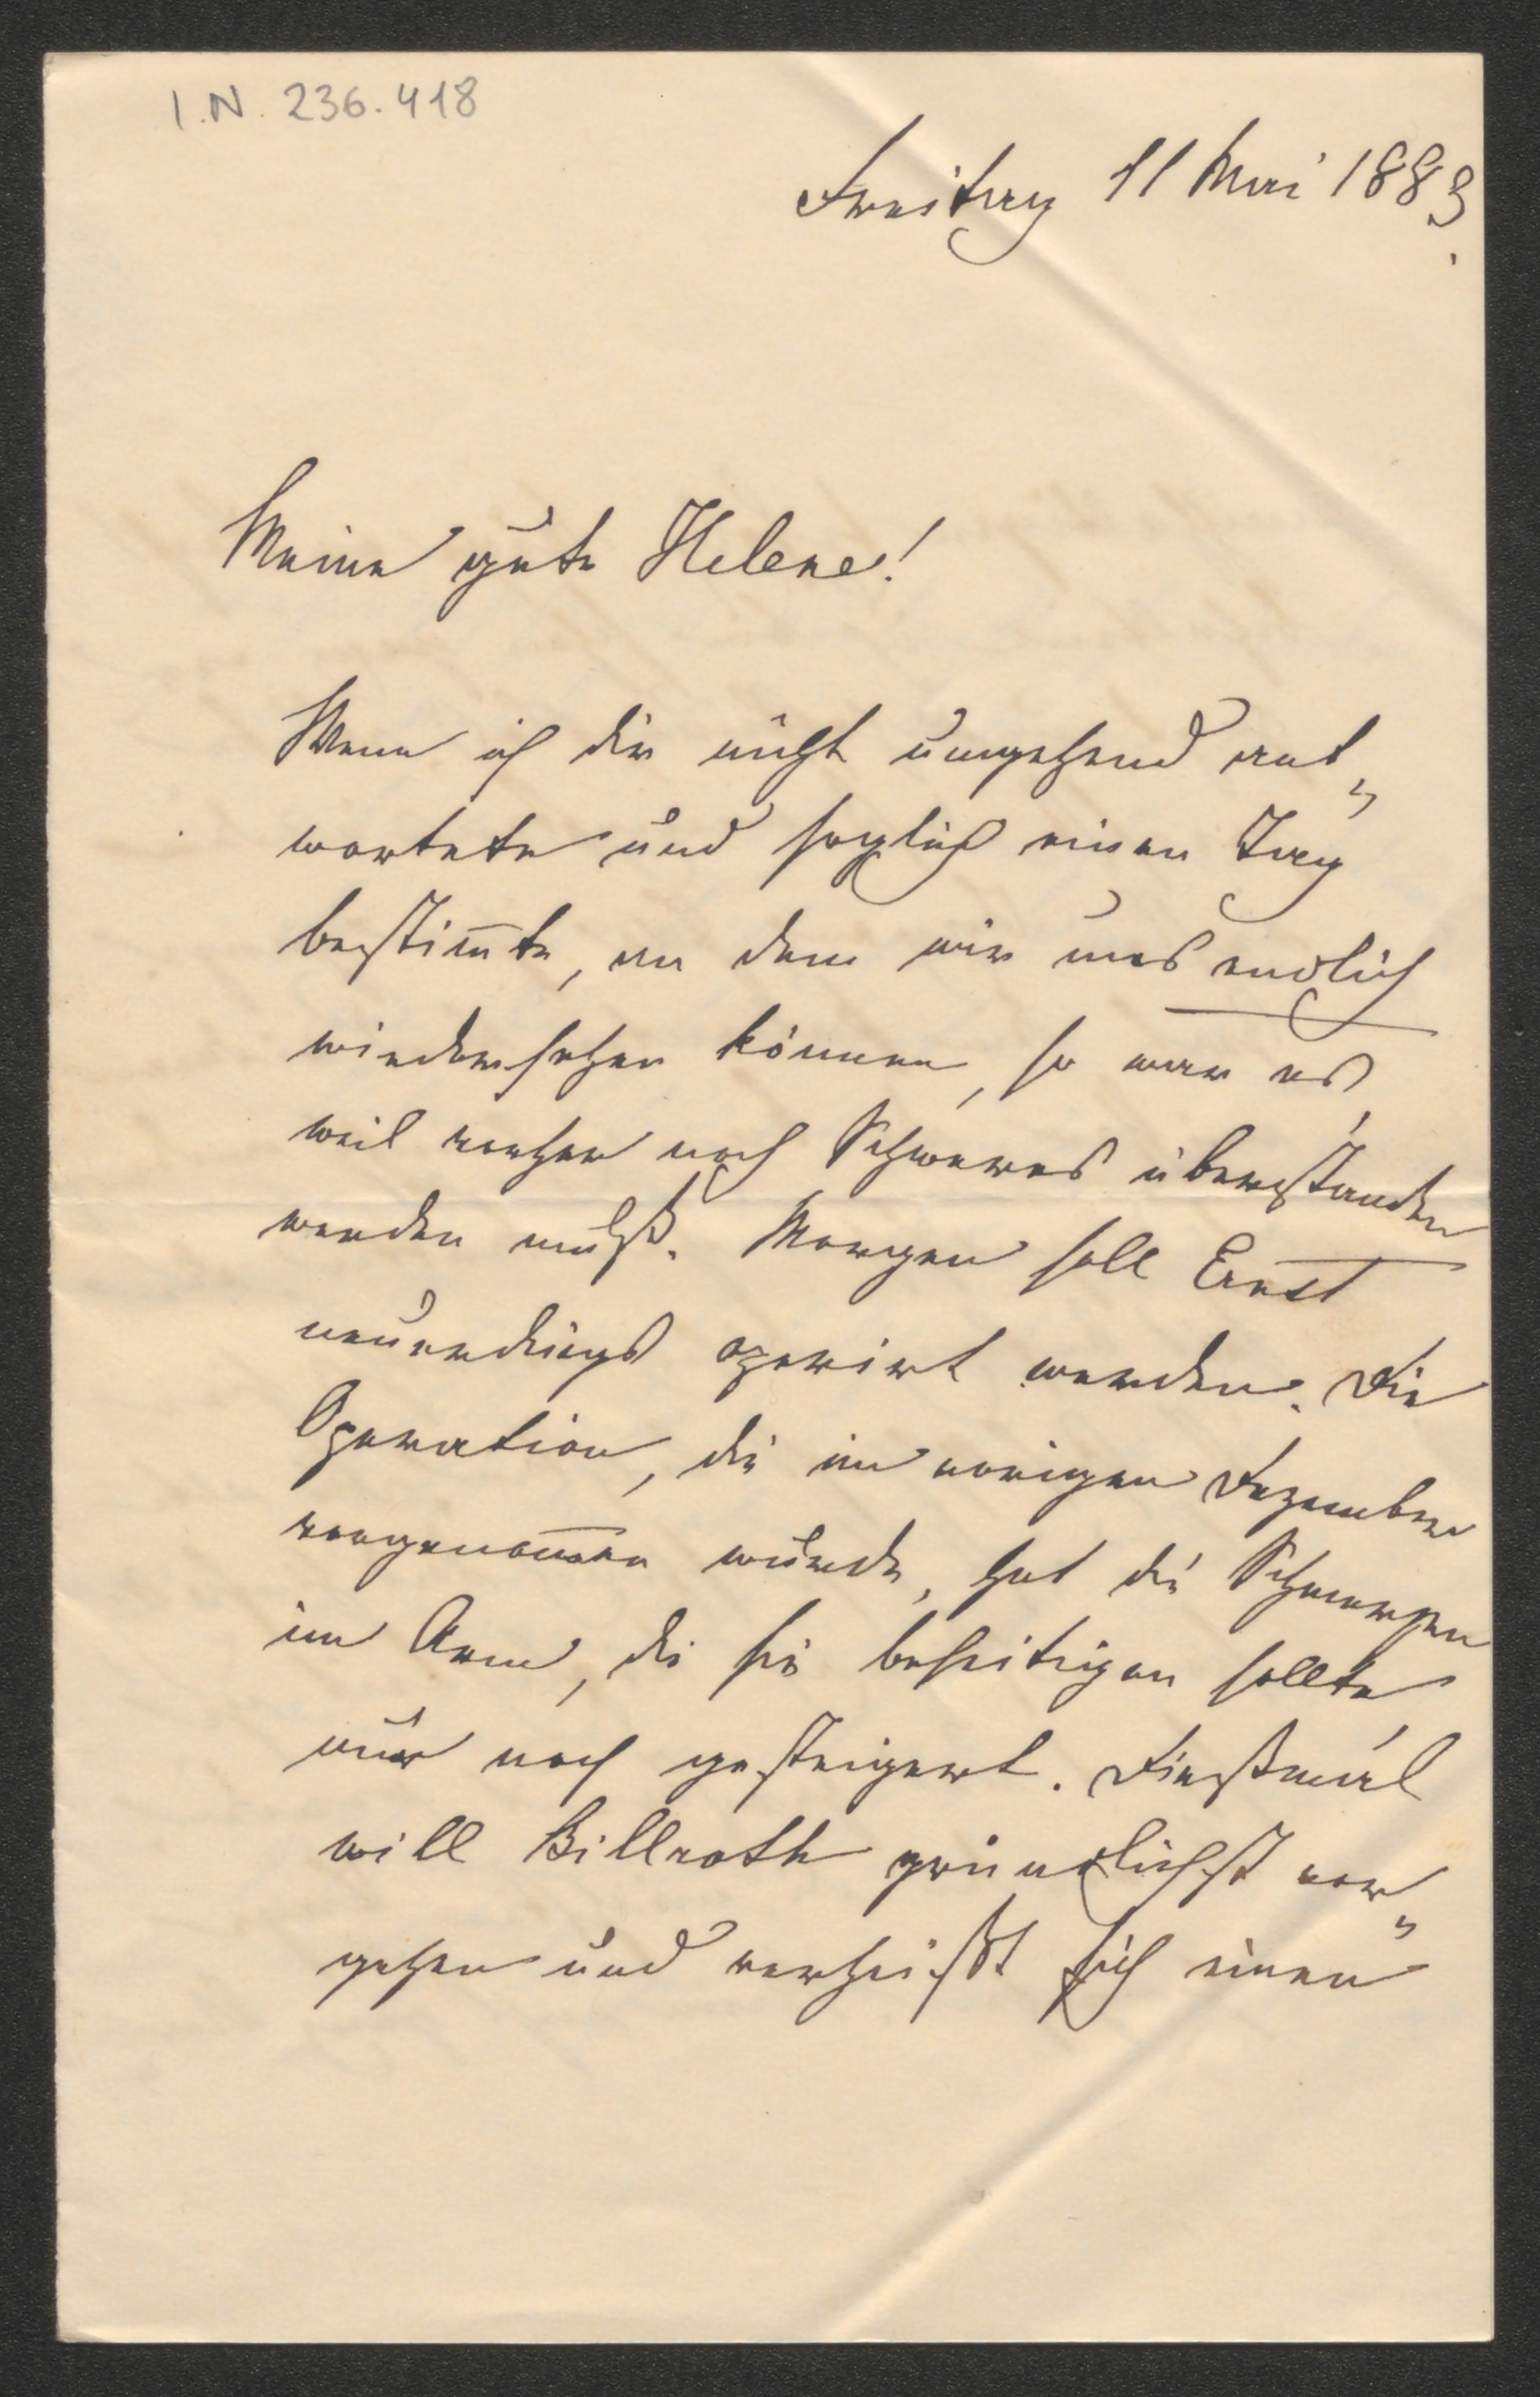 I.N. 236.418
Freitag 11 Mai 1883.
Meine gute Helene!
Wenn ich dir nicht umgehend ant„
wortete und sogleich einen Tag
bestim̅te, an dem wir uns endlich
wiedersehen können, so war es,
weil vorher noch Schweres überstanden
werden muß. Morgen soll Ernst
neuerdings operirt werden. Die
Operation, die im vorigen Dezember
vorgenom̅en wurde, hat die Schmerzen
im Arm, die sie beseitigen sollte,
nur noch gesteigert. Dießmal
will Billroth gründlichst vor„
gehen und verheißt sich einen